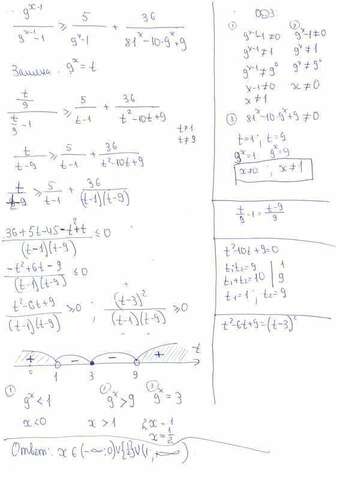 9^(x-1)/(9^(x-1)-1) ≥ 5/(9^x-1) + 36/(81^x-10·9^x+9)
Замена: 9^x=t
(t/9)/(t/9-1) ≥ 5/(t-1) + 36/(t²-10t+9)
t≠1
t≠9
t/(t-9) ≥ 5/(t-1) + 36/(t²-10t+9)
t/(t-9) ≥ 5/(t-1) + 36/((t-1)(t-9))
(36+5t-45-t²+t)/((t-1)(t-9)) ≤0
(-t²+6t-9)/((t-1)(t-9)) ≤0
(t²-6t+9)/((t-1)(t-9)) ≥0 ; (t-3)²/((t-1)(t-9)) ≥0
+ - - + t
0 1 3 9
① ② ③
9^x<1 9^x>9 9^x=3
x<0 x>1 2x=1
x=1/2
Ответ: x∈(-∞;0)∪{1/2}∪(1;+∞)
ОДЗ
① 9^(x-1)-1≠0 ② 9^x-1≠0
9^(x-1)≠1 9^x≠1
9^(x-1)≠9^0 9^x≠9^0
x-1≠0 x≠0
x≠1
③ 81^x-10·9^x+9≠0
t=1; t=9
9^x=1 9^x=9
x≠0 ; x≠1
t/9-1=(t-9)/9
t²-10t+9=0
t₁t₂=9 | 1
t₁+t₂=10 | 9
t₁=1 ; t₂=9
t²-6t+9=(t-3)²